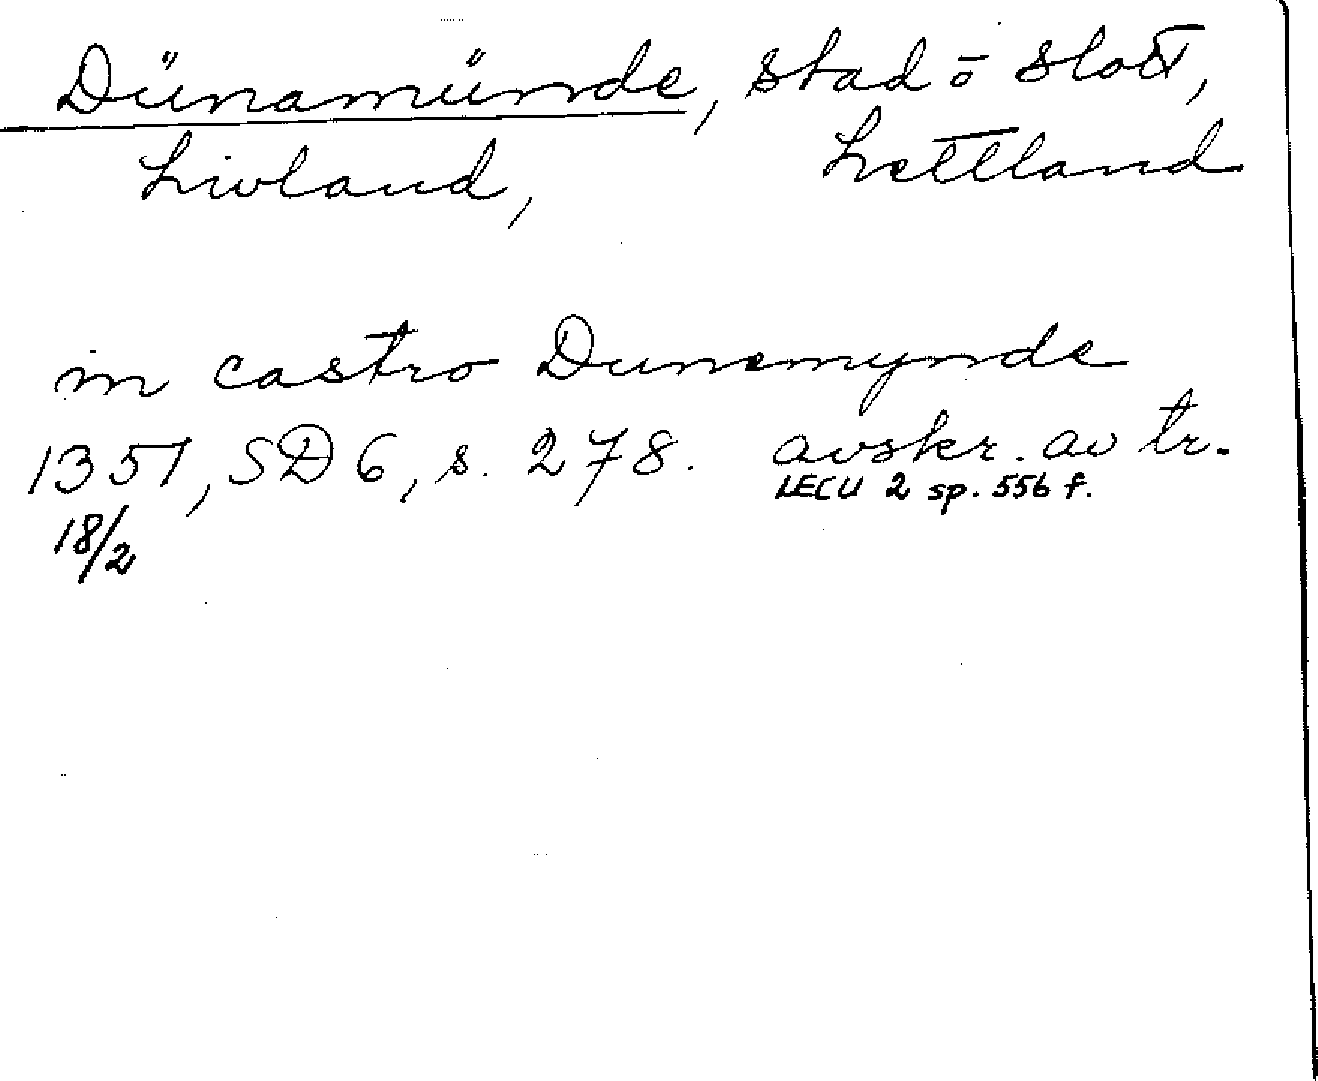 Dünamünde, stad o slott,
Livland, Lettland
in castro Dunemynde
1351, SD 6, s. 278. avskr. av tr.
18/2 LECU 2 sp. 556 f.